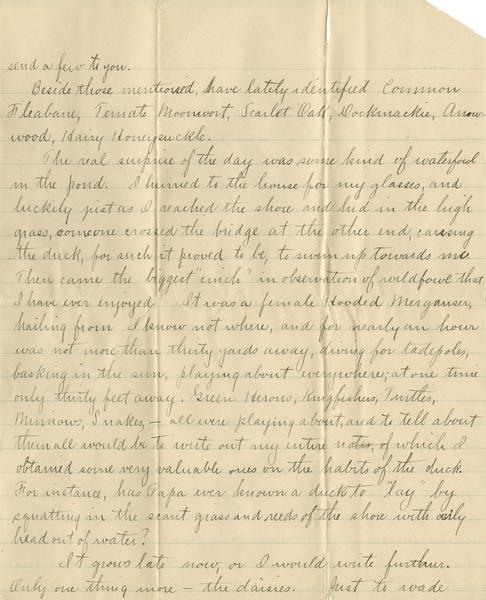 send a few to you.
Beside those mentioned, have lately identified Common
Fleabane, Ternate Moonwort, Scarlet Oak, Dockmackie, Arrow-
wood, Hairy Honeysuckle.
The real surprise of the day was some kind of waterfowl
in the pond. I hurried to the house for my glasses, and
luckily just as I reached the shore and hid in the high
grass, someone crossed the bridge at the other end, causing
the duck, for such it proved to be, to swim up towards me.
Then came the biggest "cinch" in observation of wildfowl that
I have ever enjoyed. It was a female Hooded Merganser,
hailing from I know not where, and for nearly an hour
was not more than thirty yards away, diving for tadpoles,
basking in the sun, playing about everywhere; at one time
only thirty feet away. Green Herons, Kingfishers, Turtles,
Minnows, Snakes, — all were playing about, and to tell about
them all would be to write out my entire notes, of which I
obtained some very valuable ones on the habits of the duck.
For instance, has Papa ever known a duck to "lay" by
squatting in the scant grass and reeds of the shore with only
head out of water?
It grows late now, or I would write further.
Only one thing more — the daisies. Just to wade